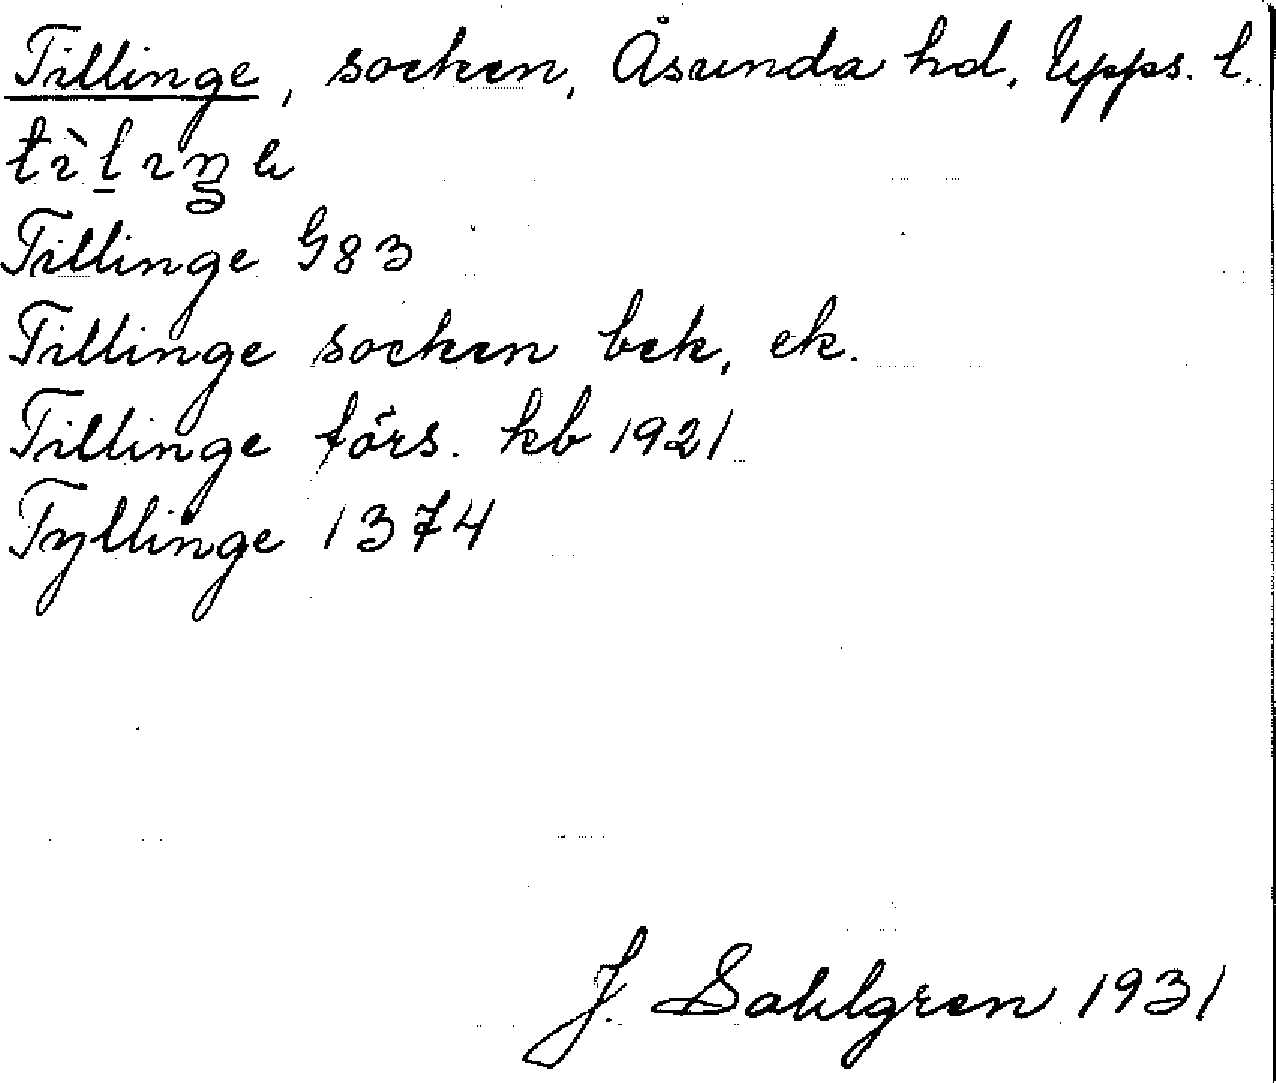 Tillinge, socken, Åsunda hd. Upps. l.
Tillinge G83
Tillinge socken bek, ek.
Tillinge förs. kb 1921
Tyllinge 1374
J. Sahlgren 1931